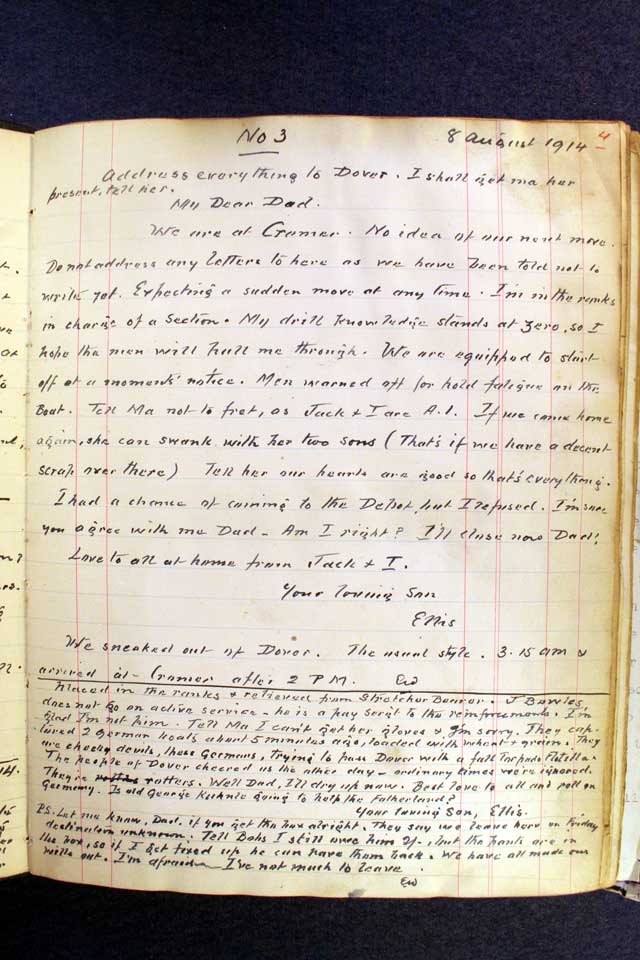 No 3 8 August 1914 4
Address everything to Dover. I shall get me her
present, tell her.
My Dear Dad.
We are at Cromer. No idea of our next move.
Do not address any letters to here as we have been told not to
write yet. Expecting a sudden move at any time. I'm in the ranks
in charge of a section. My drill knowledge stands at zero, so I
hope the men will pull me through. We are equipped to start
off at a moments' notice. Men warned off for hold fatigue on the
Boat. Tell Ma not to fret, as Jack & I are A.1. If we come home
again, she can swank with her two sons (That's if we have a decent
scrap over there) Tell her our hearts are good so that's everything.
I had a chance of coming to the Depot, but I refused. I'm sure
you agree with me Dad - Am I right? I'll close now Dad!
Love to all at home from Jack & I.
Your loving Son
Ellis
We sneaked out of Dover. The usual style. 3.15 am &
arrived at Cromer after 2 P.M. EW
Placed in the ranks & relieved from Stretcher Bearer. J Bowles,
does not go on active service - he is a pay serg't to the reinforcements. I'm
glad I'm not him. Tell Ma I can't get her gloves & I'm sorry. They cap-
tured 2 German boats about 5 minutes ago, loaded with wheat & grain. They
are cheeky devils, these Germans, trying to pass Dover with a full Torpedo Flotilla.
The people of Dover cheered us the other day - ordinary times we're ignored.
They're rotters. Well Dad, I'll dry up now. Best love to all and roll on
Germany. Is old George going to help the Fatherland?
Your loving Son, Ellis.
P.S. Let me know, Dad, if you get the box alright. They say we leave here on Friday
destination unknown. Tell Bobs I still owe him 2/-, but the pants are in
the box, so if I get fixed up he can have them back. We have all made our
wills out. I'm afraid I've not much to leave.
EW